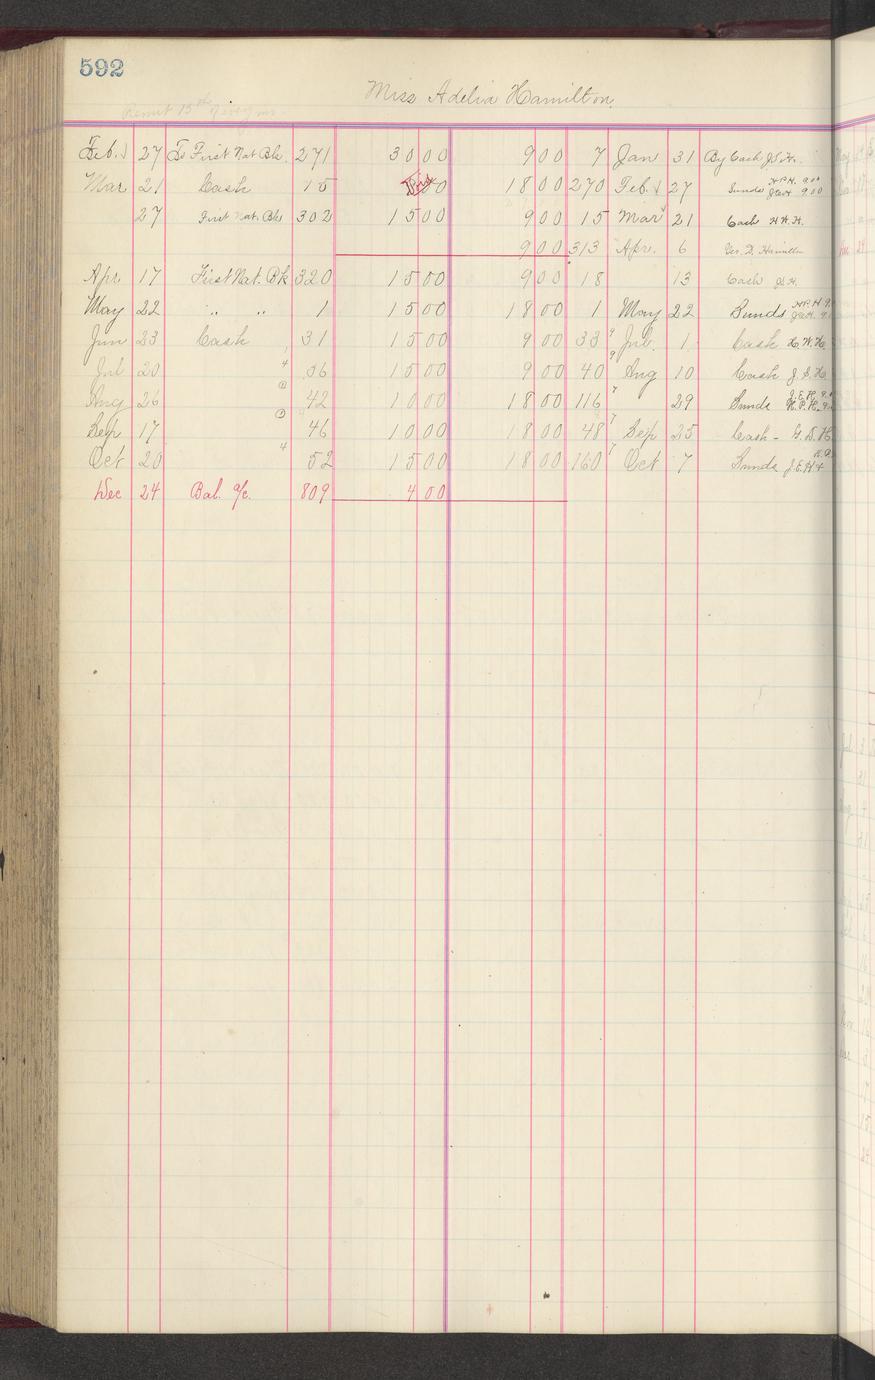 592
Miss Adelia Hamilton.
Remit 15th of every mo.
Feb. 27 To First Nat. Bk. 271 30 00 9 00 7 Jan 31 By Cash
Mar 21 Cash 15 00 18 00 270 Feb. 27 Sunds H.P.H. 9.00 9.00
27 First Nat. Bk 302 15 00 9 00 15 Mar 21 Cash H.W.H.
9 00 313 Apr. 6 Geo. D. Hamilton
Apr 17 First Nat. Bk 320 15 00 9 00 18 13 Cash
May 22 " " 1 15 00 18 00 1 May 22 Sunds H.P.H 9.
Jun 23 Cash 31 15 00 9 00 33 Jul. 1 Cash H.W.H.
Jul 20 36 15 00 9 00 40 Aug 10 Cash J.E.H
Aug 26 42 10 00 18 00 116 29 Sunds J.E.H. 9.0 H.P.H. 9.
Sep 17 46 10 00 18 00 48 Sep 25 Cash - G.D.H.
Oct 20 52 15 00 18 00 160 Oct 7 Sunds J.E.H +
Dec 24 Bal. a/c. 809 4 00